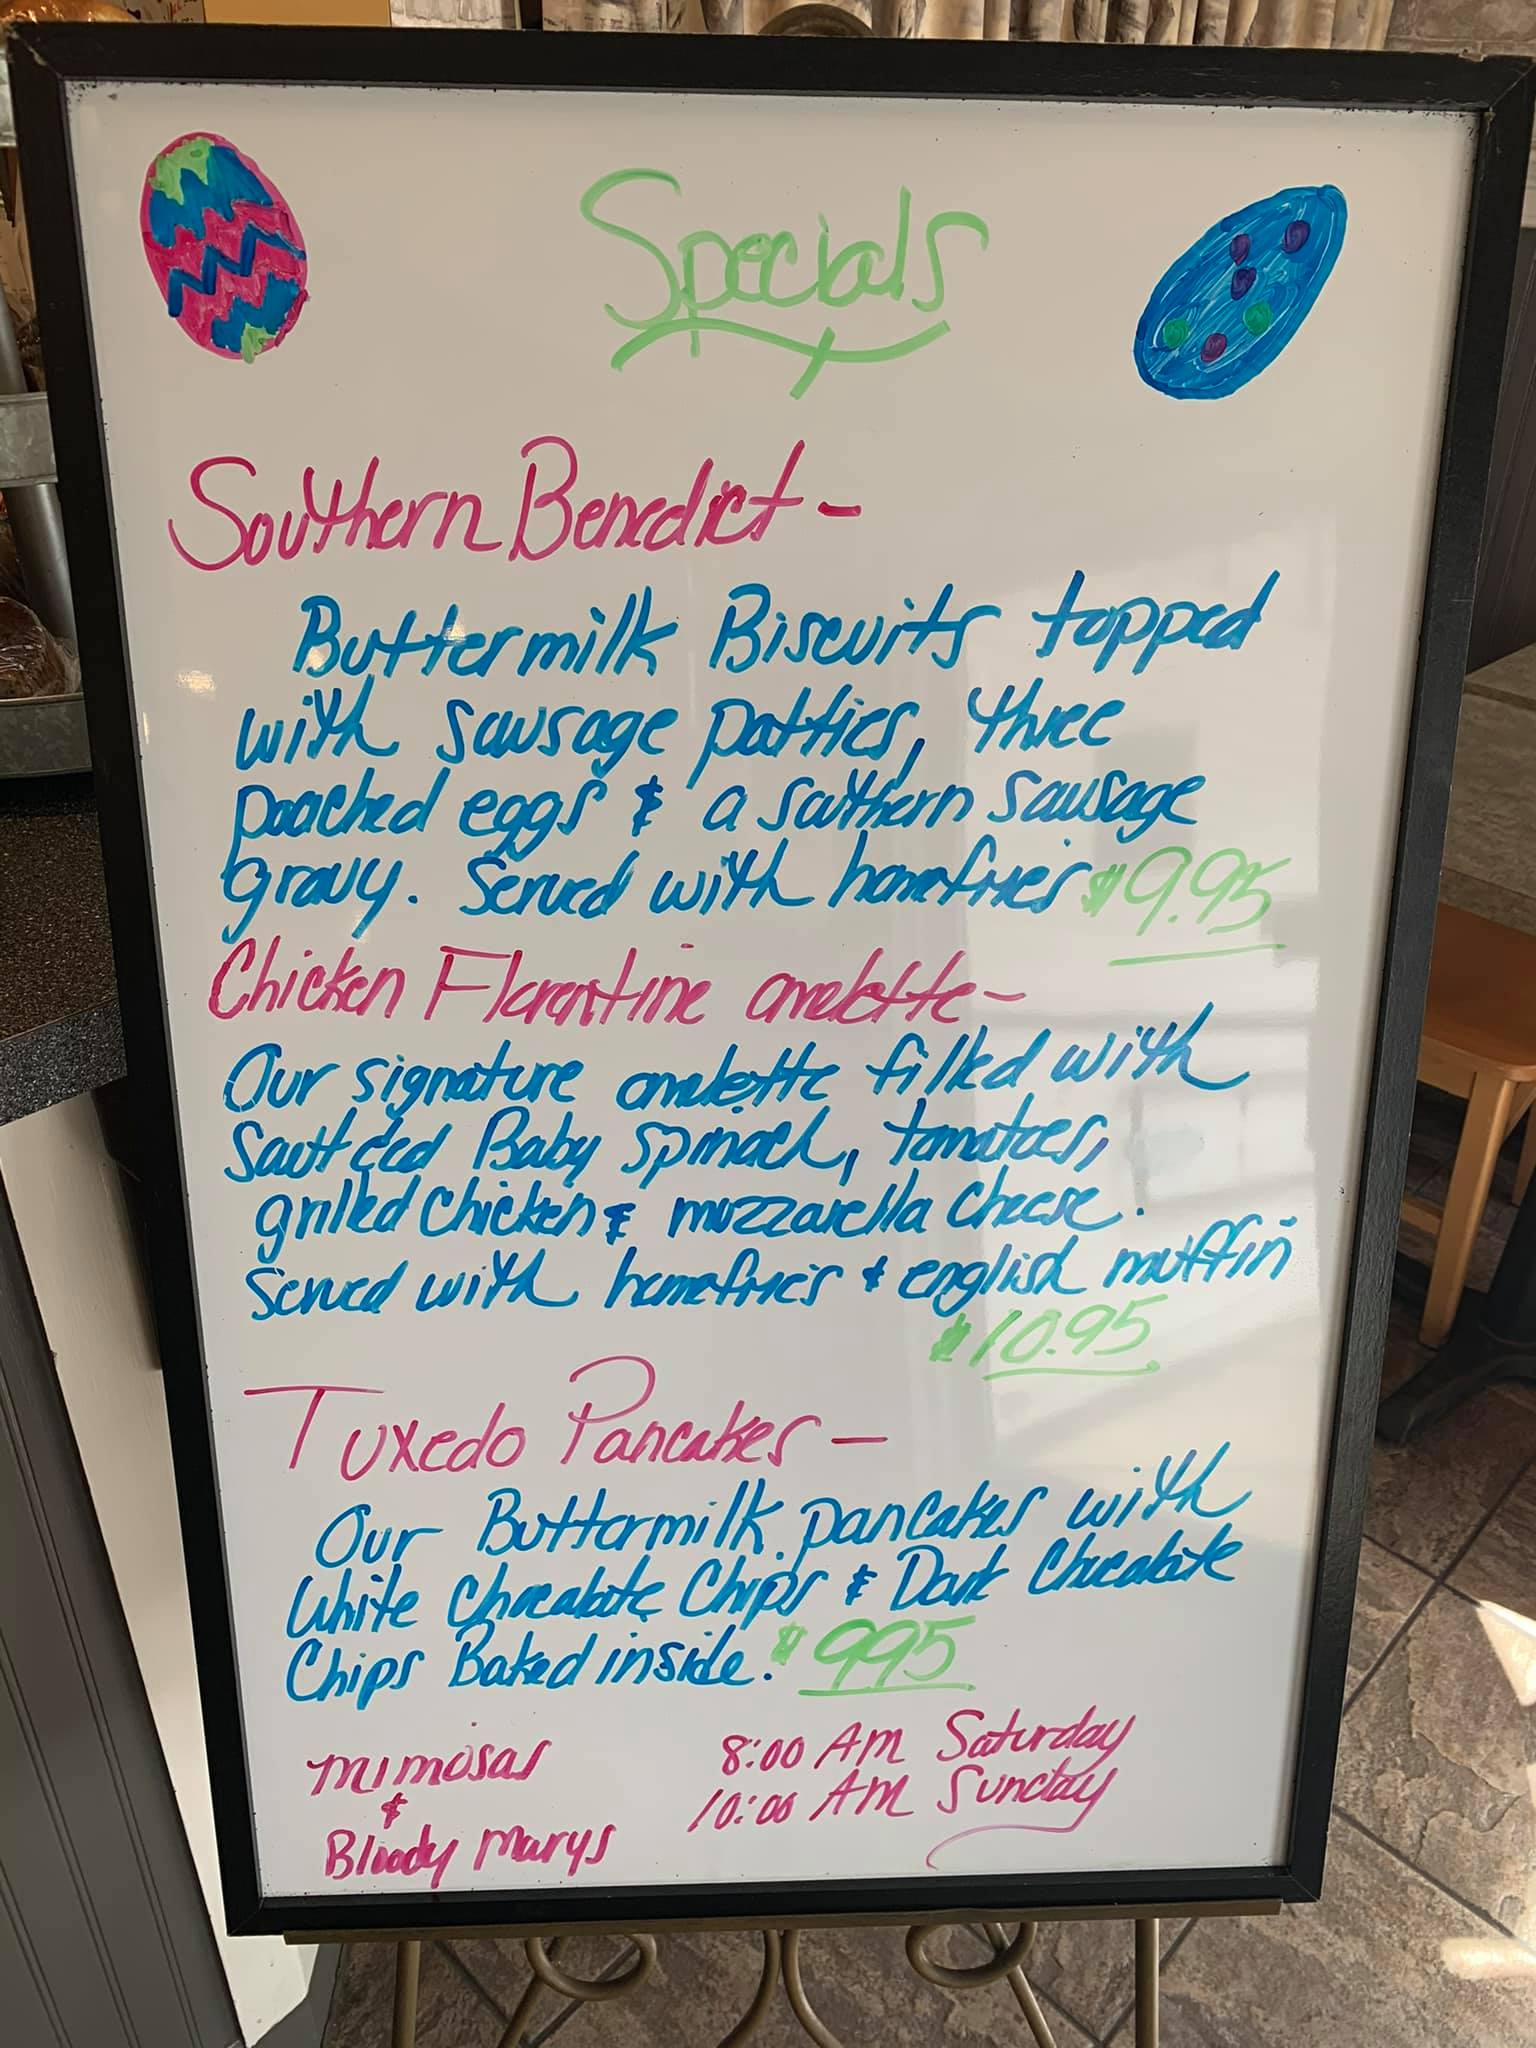 Specials
Southern Benedict -
Buttermilk Biscuits topped
with sausage patties, three
poached eggs & a southern sausage
gravy. Served with homefries $9.95
Chicken Florentine omelette -
Our signature omelette filled with
sauteed Baby spinach, tomatoes,
grilled chicken & mozzarella cheese.
Served with homefries & english muffin
$10.95
Tuxedo Pancakes -
Our Buttermilk pancakes with
White Chocolate Chips & Dark Chocolate
Chips Baked inside. $995
mimosas
&
Bloody Marys
8:00 AM Saturday
10:00 AM Sunday